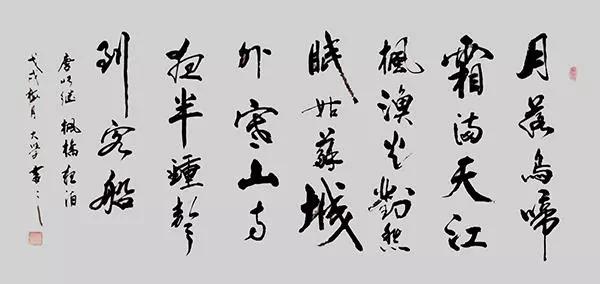 月落烏啼
霜滿天江
楓漁火對愁
眠姑蘇城
外寒山寺
夜半鐘聲
到客船
唐張継 楓橋夜泊
戊戌 月 大 書